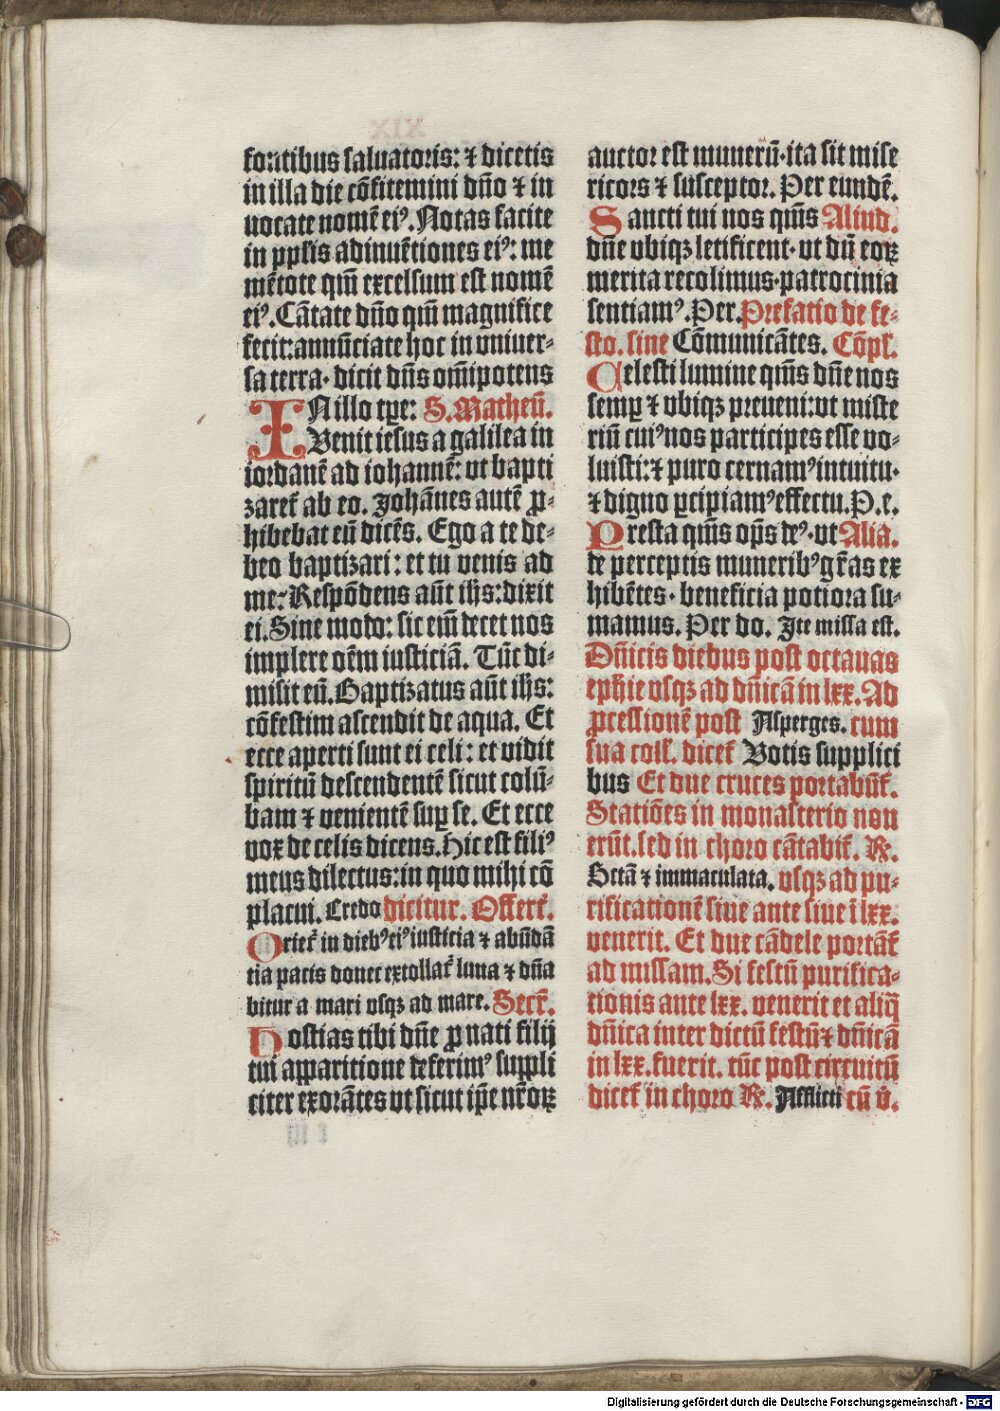 fontibus saluatoris: ⁊ dicetis
in illa die cōfitemini dño ⁊ in
uocate nomē eiꝰ. Notas facite
in pplis adinuētiones eiꝰ: me
mētote qm̄ excelsum est nomē
eiꝰ. Cātate dño qm̄ magnifice
fecit: annūciate hoc in vniuer-
sa terra· dicit dñs om̄ipotens
IN illo tꝑe: S. Matheū.
Venit iesus a galilea in
iordanē ad iohannē: vt bapti
zaret᷑ ab eo. Johānes autē ꝓ-
hibebat eū dicēs. Ego a te de-
beo baptizari: et tu venis ad
me: Respōdens aūt ihs: dixit
ei. Sine modo: sic eim̄ decet nos
implere oēm iusticiā. Tūc di-
misit eū. Baptizatus aūt ihs:
cōfestim ascendit de aqua. Et
ecce aperti sunt ei celi: et vidit
spiritū descendentē sicut colū-
bam ⁊ venientē suꝑ se. Et ecce
vox de celis dicens. Hic est filiꝰ
meus dilectus: in quo mihi cō
placui. Credo dicitur. Offert᷑.
Oriet᷑ in diebꝰ eiꝰ iusticia ⁊ abūdā
tia pacis donec extollat᷑ luna ⁊ dñā
bitur a mari vsqꝫ ad mare. Secr̄.
Hostias tibi dñe ꝓ nati filij
tui apparitione deferimꝰ suppli
citer exorātes vt sicut ip̄e nr̄oꝝ
auctor est munerū· ita sit mise
ricors ⁊ susceptor. Per eundē.
Sancti tui nos qm̄s Aliud.
dñe vbiqꝫ letificent· vt dū eoꝝ
merita recolimus· patrocinia
sentiamꝰ. Per. Prefatio de fe-
sto. sine Cōmunicātes. Cōpl̄.
Celesti lumine qm̄s dñe nos
semꝑ ⁊ vbiqꝫ preueni: vt miste
riū cuiꝰ nos participes esse vo-
luisti: ⁊ puro cernamꝰ intuitu·
⁊ digno ꝑcipiamꝰ effectu. P. e.
Presta qm̄s op̄s deꝰ· vt Alia.
de perceptis muneribꝰ gr̄as ex
hibētes· beneficia potiora su-
mamus. Per do. Ite missa est.
Dñicis diebus post octauas
ephie vsqꝫ ad dñicā in lxx. Ad
ꝓcessionē post Asperges. cum
sua coll̄. dicet᷑ Votis supplici
bus Et due cruces portabūt᷑.
Statiōes in monasterio non
erūt. sed in choro cātabit᷑. R̷.
Sctā ⁊ immaculata. vsqꝫ ad pu-
rificationē siue ante siue ī lxx.
venerit. Et due cādele portāt᷑
ad missam. Si festū purifica-
tionis ante lxx. venerit et aliq̄
dñica inter dictū festū ⁊ dñicā
in lxx. fuerit. tūc post circuitū
dicet᷑ in choro R̷. Afflicti cū v̇.
Digitalisierung gefördert durch die Deutsche Forschungsgemeinschaft - DFG